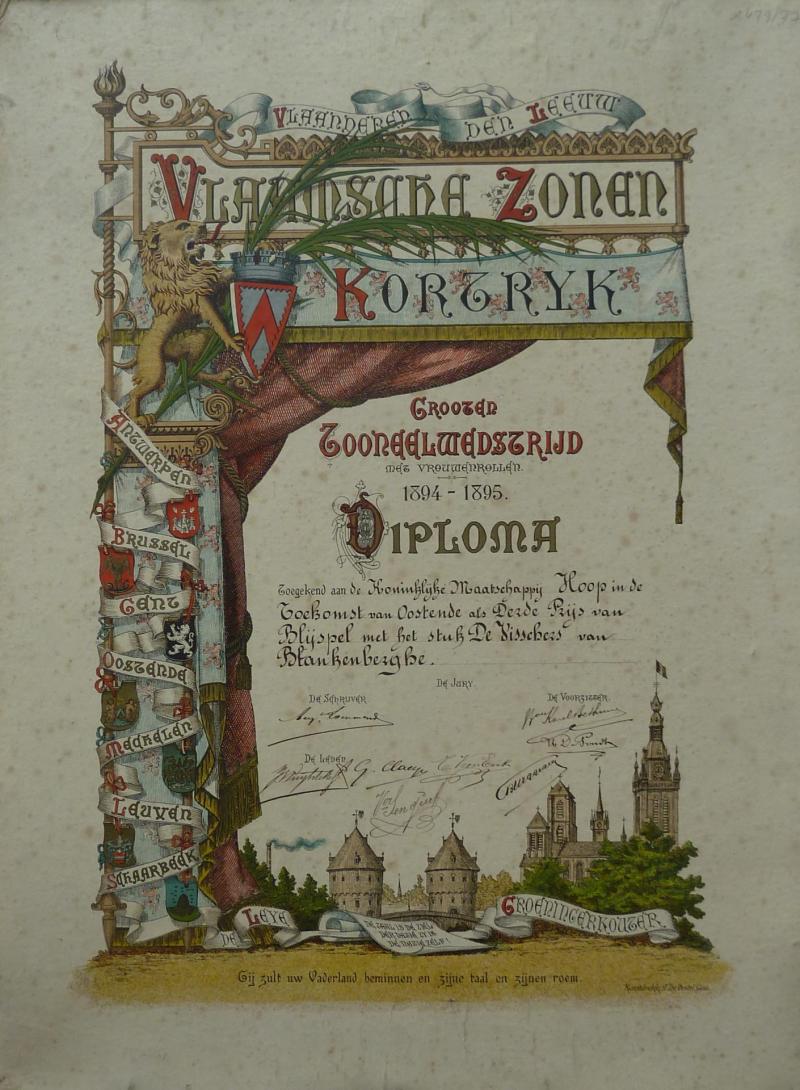 Vlaanderen den Leeuw
Vlaamsche Zonen
Kortryk
Grooten
Tooneelwedstrijd
met vrouwenrollen.
1894 - 1895.
Diploma
Toegekend aan de Koninklijke Maatschappij Hoop in de
Toekomst van Oostende als Derde Prijs van
Blijspel met het stuk De Visschers van
Blankenberghe.
De Jury.
De Schrijver
De Voorzitter.
De Leden
Antwerpen
Brussel
Gent
Oostende
Mechelen
Leuven
Schaarbeek
De Leye
De taal is de ziel
Groeningerkouter
Gij zult uw Vaderland beminnen en zijne taal en zijnen roem.